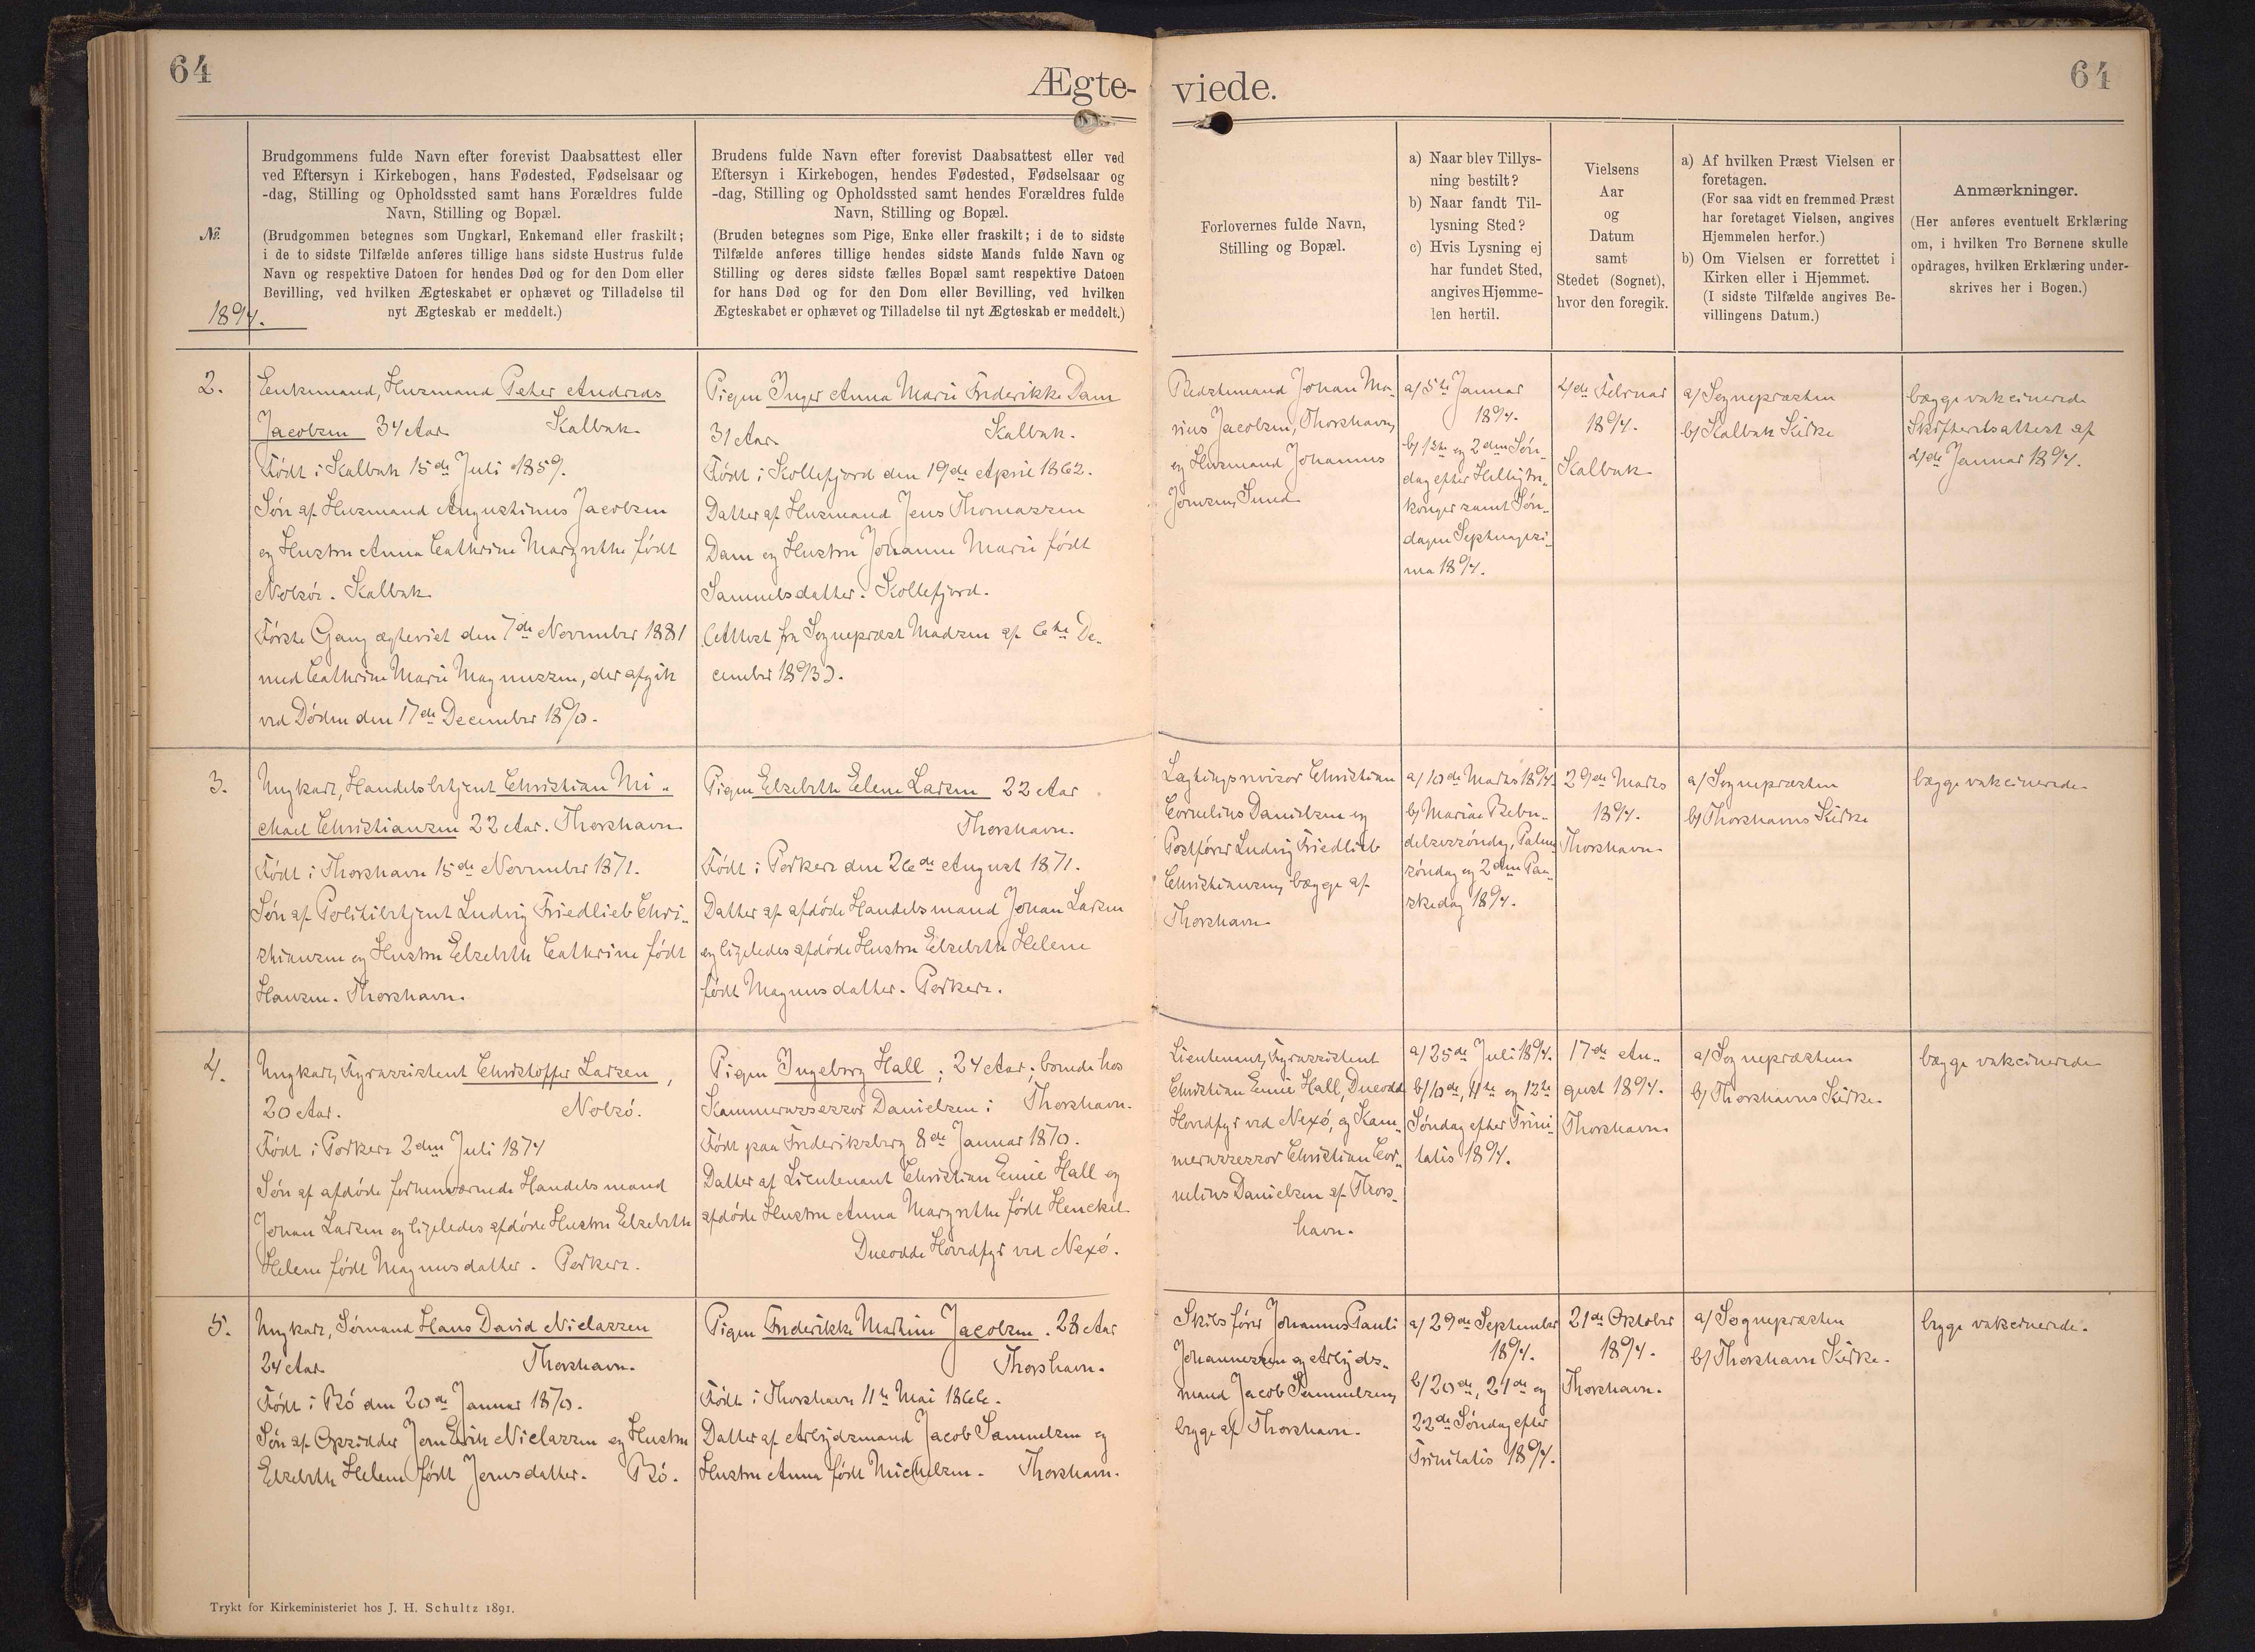 64
Ægte-
viede.
64
№
1894.
Brudgommens fulde Navn efter forevist Daabsattest eller
ved Eftersyn i Kirkebogen, hans Fødested, Fødselsaar og
-dag, Stilling og Opholdssted samt hans Forældres fulde
Navn, Stilling og Bopæl.
(Brudgommen betegnes som Ungkarl, Enkemand eller fraskilt;
i de to sidste Tilfælde anføres tillige hans sidste Hustrus fulde
Navn og respektive Datoen for hendes Død og for den Dom eller
Bevilling, ved hvilken Ægteskabet er ophævet og Tilladelse til
nyt Ægteskab er meddelt.)
Brudens fulde Navn efter forevist Daabsattest eller ved
Eftersyn i Kirkebogen, hendes Fødested, Fødselsaar og
-dag, Stilling og Opholdssted samt hendes Forældres fulde
Navn, Stilling og Bopæl.
(Bruden betegnes som Pige, Enke eller fraskilt; i de to sidste
Tilfælde anføres tillige hendes sidste Mands fulde Navn og
Stilling og deres sidste fælles Bopæl samt respektive Datoen
for hans Død og for den Dom eller Bevilling, ved hvilken
Ægteskabet er ophævet og Tilladelse til nyt Ægteskab er meddelt.)
Forlovernes fulde Navn,
Stilling og Bopæl.
a) Naar blev Tillys-
ning bestilt?
b) Naar fandt Til-
lysning Sted?
c) Hvis Lysning ej
har fundet Sted,
angives Hjemme-
len hertil.
Vielsens
Aar
og
Datum
samt
Stedet (Sognet),
hvor den foregik.
a) Af hvilken Præst Vielsen er
foretagen.
(For saa vidt en fremmed Præst
har foretaget Vielsen, angives
Hjemmelen herfor.)
b) Om Vielsen er forrettet i
Kirken eller i Hjemmet.
(I sidste Tilfælde angives Be-
villingens Datum.)
Anmærkninger.
(Her anføres eventuelt Erklæring
om, i hvilken Tro Børnene skulle
opdrages, hvilken Erklæring under-
skrives her i Bogen.)
2.
Enkemand, Husmand Peter Andreas
Jacobsen 34 Aar. Kalbak.
Født i Kalbak 15de Juli 1859.
Søn af Husmand Augustinus Jacobsen
og Hustru Anna Cathrine Margrethe født
Nolsøe. Kalbak.
Første Gang ægteviet den 7de November 1881
med Cathrine Marie Magnussen, der afgik
ved Døden den 17de December 1890.
Pigen Inger Anna Marie Frederikke Dam
31 Aar. Kalbak.
Født i Kollefjord den 19de April 1862.
Datter af Husmand Jens Thomassen
Dam og Hustru Johanne Marie født
Samuelsdatter. Kollefjord.
(Attest fra Sognepræst Madsen af 6te De-
cember 1893).
Redskmand Johan Ma-
rius Jacobsen, Thorshavn,
og Husmand Johannes
Joensen, Sund.
a/ 5te Januar
1894.
b/ 1ste og 2den Søn-
dag efter Helligtre-
konger samt Søn-
dagen Septuagesi-
ma 1894.
4de Februar
1894.
Kalbak.
a/ Sognepræsten
b/ Kalbak Kirke
begge vakcinerede
Skifteretsattest af
4de Januar 1894.
3.
Ungkarl, Handelsbetjent Christian Mi-
chael Christiansen 22 Aar. Thorshavn.
Født i Thorshavn 15de November 1871.
Søn af Politibetjent Ludvig Friedlieb Chri-
stiansen og Hustru Elsebeth Cathrine født
Hansen. Thorshavn.
Pigen Elsebeth Elene Larsen 22 Aar
Thorshavn.
Født i Porkere den 26de August 1871.
Datter af afdøde Handelsmand Johan Larsen
og ligeledes afdøde Hustru Elsebeth Helene
født Magnusdatter. Porkere.
Lagtingsrevisor Christian
Cornelius Danielsen og
Postfører Ludvig Friedlieb
Christiansen, begge af
Thorshavn.
a/ 10de Marts 1894.
b/ Mariæ Bebu-
delsessøndag, Palme-
søndag og 2den Paa-
skedag 1894.
29de Marts
1894.
Thorshavn.
a/ Sognepræsten
b/ Thorshavns Kirke
begge vakcinerede.
4.
Ungkarl, Fyrassistent Christoffer Larsen,
20 Aar. Nolsø.
Født i Porkere 2den Juli 1874
Søn af afdøde forhenværende Handelsmand
Johan Larsen og ligeledes afdøde Hustru Elsebeth
Helene født Magnusdatter. Porkere.
Pigen Ingeborg Hall; 24 Aar; boende hos
Kammerassessor Danielsen i Thorshavn.
Født paa Frederiksberg 8de Januar 1870.
Datter af Lieutenant Christian Emie Hall og
afdøde Hustru Anna Margrethe født Henckel.
Dueodde Hovedfyr ved Nexø.
Lieutenant, Fyrassistent
Christian Emie Hall, Dueodde
Hovedfyr ved Nexø, og Kam-
merassessor Christian Cor-
nelius Danielsen af Thors-
havn.
a/ 25de Juli 1894.
b/ 10de, 11te og 12te
Søndag efter Trini-
tatis 1894.
17de Au-
gust 1894.
Thorshavn.
a/ Sognepræsten
b/ Thorshavns Kirke.
begge vakcinerede
5.
Ungkarl, Sømand Hans David Niclassen
24 Aar. Thorshavn.
Født i Bø den 20de Januar 1870.
Søn af Opsidder Joen Erik Niclassen og Hustru
Elsebeth Helene født Jensdatter. Bø.
Pigen Frederikke Mathine Jacobsen. 28 Aar
Thorshavn.
Født i Thorshavn 11te Mai 1866.
Datter af Arbejdsmand Jacob Samuelsen og
Hustru Anna født Michelsen. Thorshavn.
Skibsfører Johannes Pauli
Johannesen og Arbejds-
mand Jacob Samuelsen,
begge af Thorshavn.
a/ 29de September
1894.
b/ 20de, 21de og
22de Søndag efter
Trinitatis 1894.
21de Oktober
1894.
Thorshavn.
a/ Sognepræsten
b/ Thorshavn Kirke.
begge vakcinerede.
Trykt for Kirkeministeriet hos J. H. Schultz 1891.